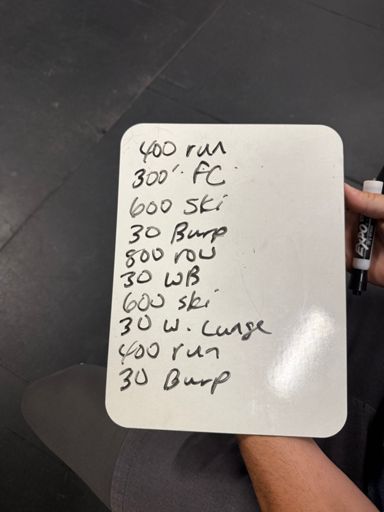 400 run
300' FC
600 Ski
30 Burp
800 row
30 WB
600 ski
30 W. Lunge
400 run
30 Burp
EXPO